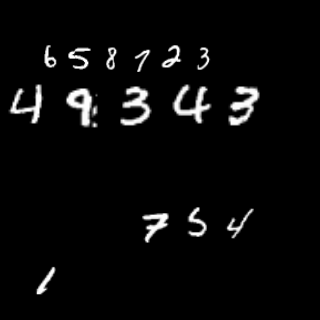 658723
49343
754
1